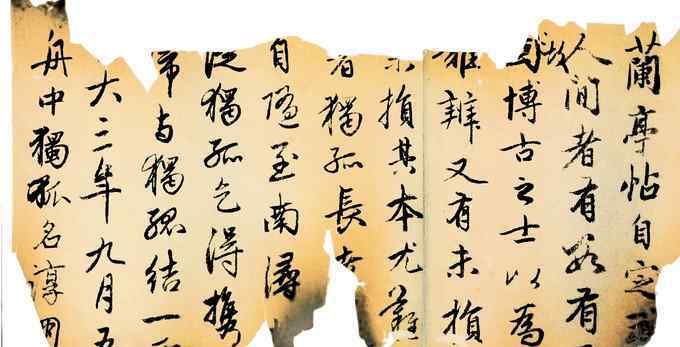 蘭亭帖自定
人間者有數有
博古之士以為
難辨又有未損
未損其本尤難
者獨孤長老
自隨至南潯
從獨孤乞得攜
與獨孤結一
大三年九月五
舟中獨孤名淳朋